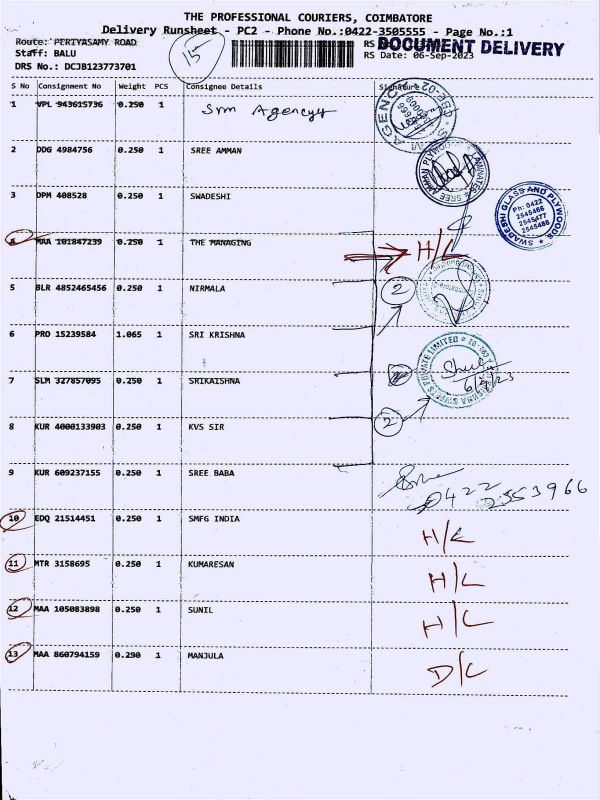 THE PROFESSIONAL COURIERS, COIMBATORE
Delivery Runsheet - PC2 - Phone No.:0422-3505555 - Page No.:1
Route: PERIYASAMY ROAD
Staff: BALU
DRS No.: DCJB123773701
15
RS
DOCUMENT DELIVERY
RS Date: 06-Sep-2023
S No Consignment No Weight PCS Consignee Details Signature
1 VPL 943615736 0.250 1 Svm Agencyy
2 DDG 4984756 0.250 1 SREE AMMAN
3 DPM 408528 0.250 1 SWADESHI
SWADESHI GLASS AND PLYWOODS
Ph: 0422
2545466
2545477
2545488
4 MAA 101847239 0.250 1 THE MANAGING H/L
5 BLR 4852465456 0.250 1 NIRMALA 2
6 PRO 15239584 1.065 1 SRI KRISHNA
7 SLM 327857095 0.250 1 SRIKAISHNA
PRIVATE LIMITED
6/9/23
8 KUR 4000133903 0.250 1 KVS SIR 2
9 KUR 609237155 0.250 1 SREE BABA
0422
2553966
10 EDQ 21514451 0.250 1 SMFG INDIA H/L
11 MTR 3158695 0.250 1 KUMARESAN H/L
12 MAA 105083898 0.250 1 SUNIL H/L
13 MAA 860794159 0.290 1 MANJULA D/L